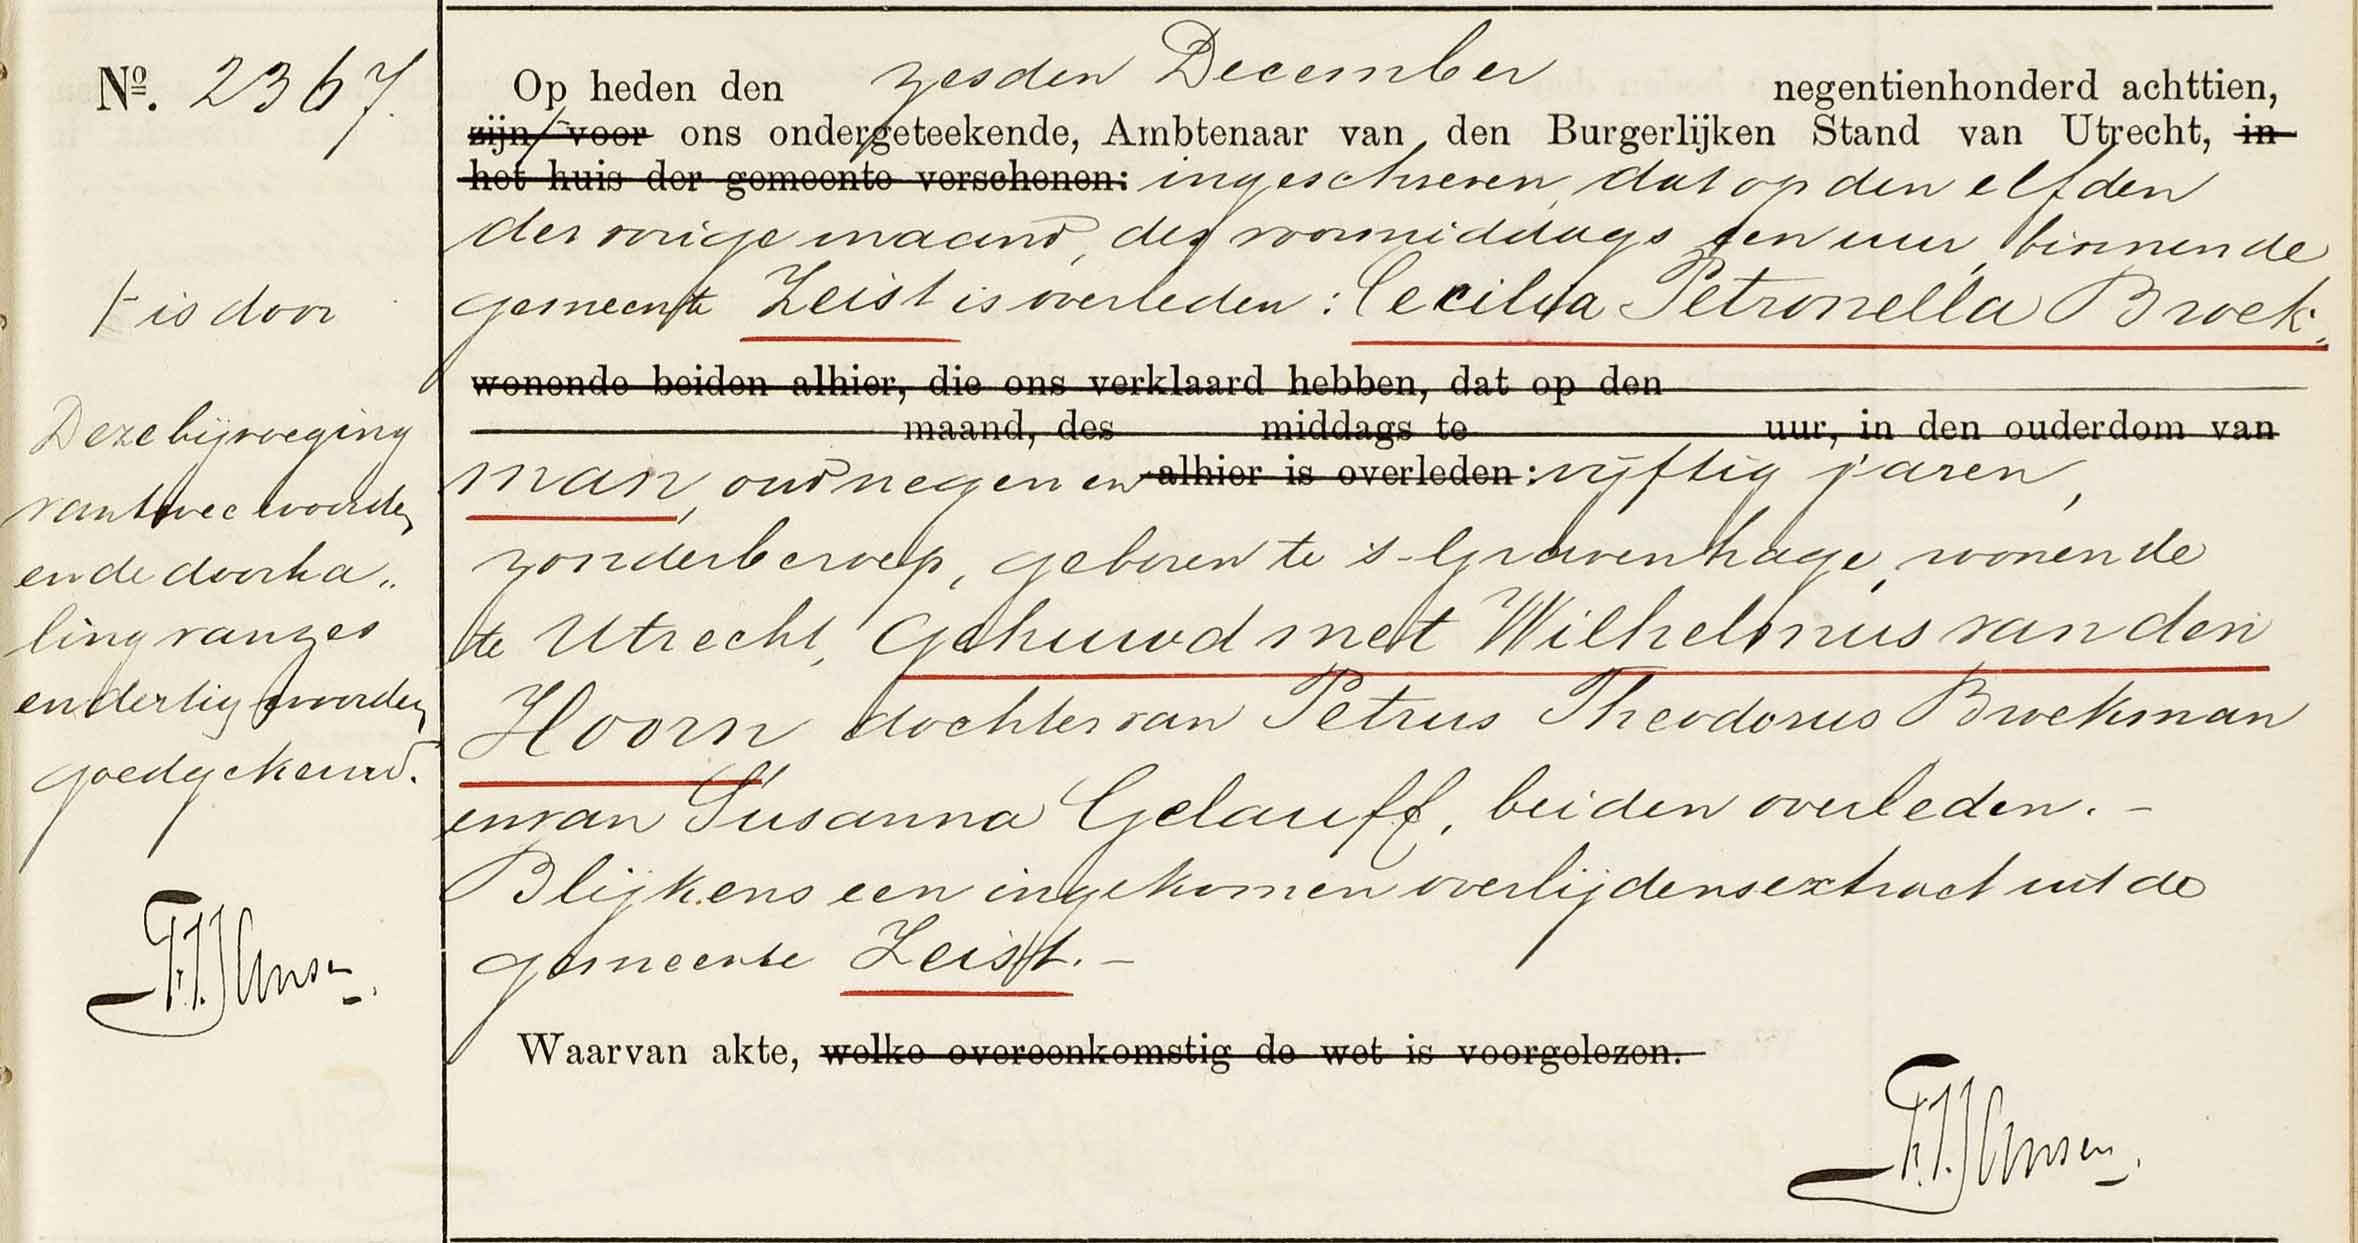 Nº. 2367.
Op heden den zesden December negentienhonderd achttien,
zijn ⊦ voor ons ondergeteekende, Ambtenaar van den Burgerlijken Stand van Utrecht, in
het huis der gemeente verschenen: ingeschreven, dat op den elfden
der vorige maand, des voormiddags een uur, binnen de
gemeente Zeist is overleden: Cecilia Petronella Broek-
wonende beiden alhier, die ons verklaard hebben, dat op den
maand, des middags te uur, in den ouderdom van
man, oud negen en alhier is overleden: vijftig jaren,
zonder beroep, geboren te 's-Gravenhage, wonende
te Utrecht, gehuwd met Wilhelmus van den
Hoorn dochter van Petrus Theodorus Broekman
en van Susanna Gelauff, beiden overleden. -
Blijkens een ingekomen overlijdensextract uit de
gemeente Zeist. -
Waarvan akte, welke overeenkomstig de wet is voorgelezen.
⊦ is door
Deze bijvoeging
van twee woorden
en de doorha„
ling van zes
en dertig woorden
goedgekeurd.
F.J. Jansen.
F.J. Jansen.